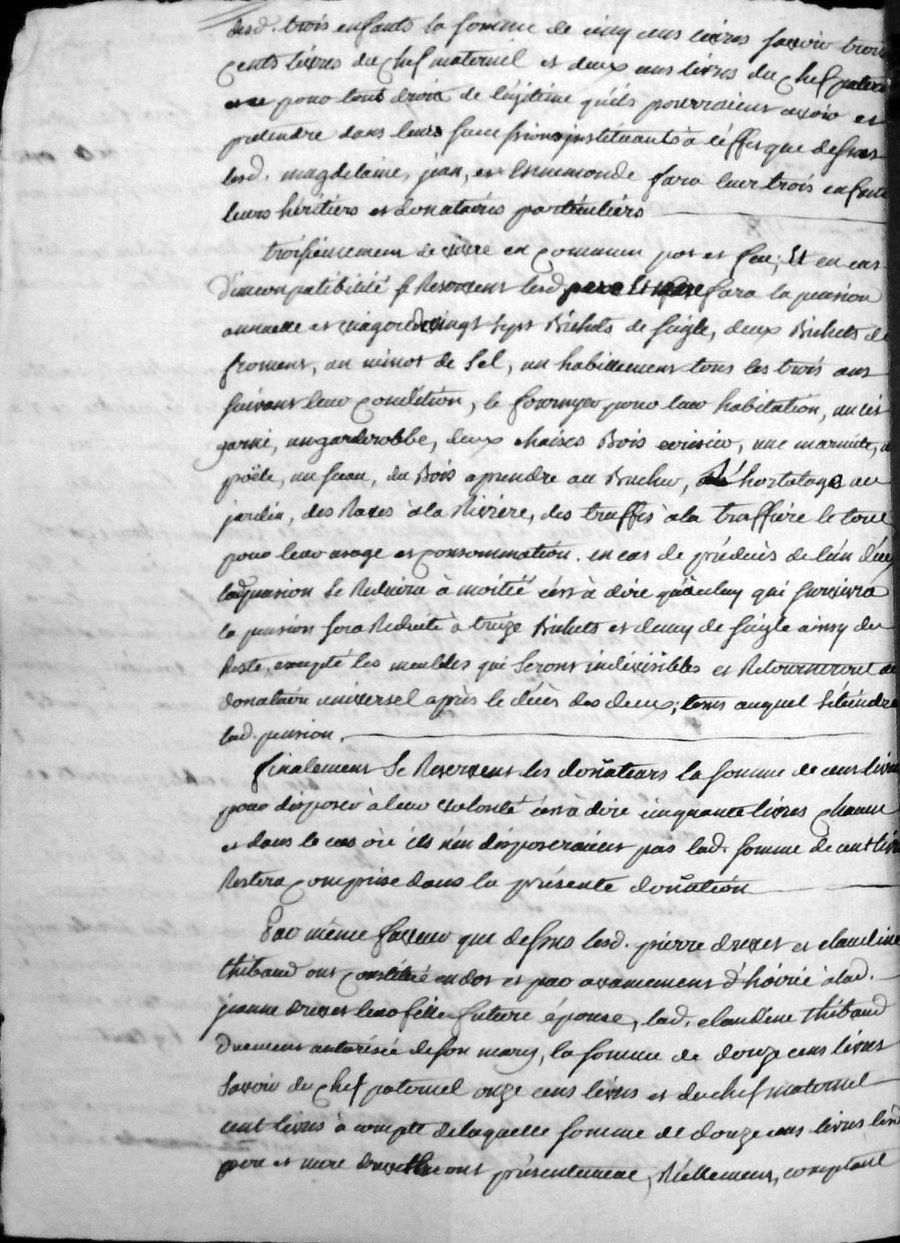 desd. trois enfants la somme de cinq cens livres savoir trois
cents livres du chef maternel et deux cens livres du chef paternel
et ce pour tout droit de légitime qu'ils pourraient avoir et
prétendre dans leurs successions instituants à l'effet que dessus
lesd. magdelaine, jean, et Ennemonde fara leur trois enfants
leurs héritiers et donataires particuliers
troisiemement de vivre en commun pot et feu; Et en cas
d'incompatibilité se Reservent lesd pere Et mere fara la pension
annuelle et viagere de vingt sept Bichets de seigle, deux Bichets de
froment, un minot de Sel, un habillement tous les trois ans
suivant leur condition, le pour leur habitation, un lit
garni, un garderobbe, deux chaises Bois une marmite, un
poële, un seau, du Bois a prendre au Bucher, de l'hortolage au
jardin, des Raves à la Rivière, des truffes à la truffière le tout
pour leur usage et consommation. en cas de prédécès de l'un d'eux
lad pension se Reduira à moitié c'est à dire qu'a celuy qui survivra
la pension sera Reduite à treize Bichets et demy de seigle ainsy du
Reste, excepté les meubles qui seront indivisibles et Retourneront au
donataire universel après le décès des deux; tems auquel s'éteindra
lad. pension.
finalement se Reservent les donateurs la somme de cent livres
pour disposer à leur volonté c'est a dire cinquante livres chacun
et dans le cas où ils n'en disposeraient pas lad. somme de cent livres
Restera comprise dans la présente donation
Par même faveur que dessus lesd. pierre drevet et claudine
thibaud ont constitué en dot et par avancement d'hoirie à lad.
jeanne drevet leur fille future épouse, lad. claudine thibaud
duement autorisée de son mary, la somme de douze cens livres
savoir du chef paternel onze cens livres et du chef maternel
cent livres à compte de laquelle somme de douze cens livres lesd
pere et mere ont présentement, Réellement, comptant